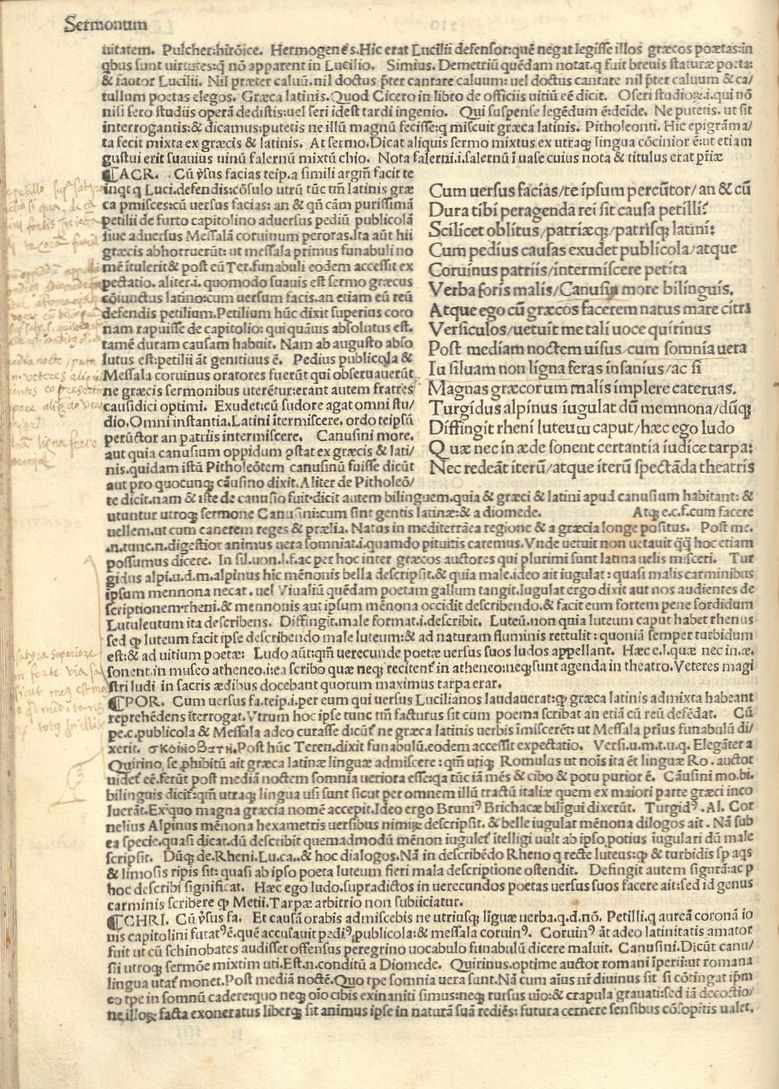 Sermonum
uitatem. Pulcher: hirōice. Hermogenēs. Hic erat Lucilii defensor: quē negat legisse illos græcos poætas: in
qbus sunt uirtutes: q nō apparent in Lucilio. Simius. Demetriū quēdam notat. q fuit breuis staturæ poeta:
& fautor Lucilii. Nil præter caluū. nil doctus p̄ter cantare caluum: uel doctus cantare nil p̄ter caluum & ca/
tullum poetas elegos. Græca latinis. Quod Cicero in libro de officiis uitiū eē dicit. O seri studioꝝ. i. qui nō
nisi sero studiis operā dedistis: uel seri idest tardi ingenio. Qui suspense legēdum ē: deīde. Ne putetis. ut sit
interrogantis: & dicamus: putetis ne illū magnū fecisse: q miscuit græca latinis. Pitholeonti. Hic epigrāma/
ta fecit mixta ex græcis & latinis. At sermo. Dicat aliquis sermo mixtus ex utraq; lingua cōcinior ē: ut etiam
gustui erit suauius uinū falernū mixtū chio. Nota falerni. i. falernū ī uase cuius nota & titulus erat p̄riæ
¶ACR. Cū ꝟsus facias teip. a simili argīn facit te
inqt q Luci. defendis: cōsulo utrū tūc tm̄ latinis græ
ca pmisces: cū uersus facias: an & qn̄ cām purissimā
petilii de furto capitolino aduersus pediū publicolā
siue aduersus Messalā coruinum peroras. Ita aūt hii
græcis abhorruerūt: ut messala primus funabuli no
mē ītulerit & post eū Ter. funabuli eodem accessit ex
pectatio. aliter. i. quomodo suauis est sermo græcus
cōiunctus latino: cum uersum facis. an etiam eū reū
defendis petilium. Petilium hūc dixit superius coro
nam rapuisse de capitolio: qui quāuis absolutus est.
tamē duram causam habuit. Nam ab augusto abso
lutus est: petilii āt genitiuus ē. Pedius publicola &
Messala coruinus oratores fuerūt qui obseruauerūt
ne græcis sermonibus uterētur: erant autem fratres
causidici optimi. Exudet: cū sudore agat omni stu/
dio. Omni instantia. Latini ītermiscere. ordo teipsū
perūctor an patriis intermiscere. Canusini more.
aut quia canusium oppidum ꝯstat ex græcis & lati/
nis. quidam istū Pitholeōtem canusinū fuisse dicūt
aut pro quocunq; cāusino dixit. Aliter de Pitholeō/
te dicit. nam & iste de canusio fuit. dicit autem bilinguem. quia & græci & latini apud canusium habitant: &
utuntur utroq; sermone Canusini: cum sint gentis latinæ: & a diomede. Atq; e. c. f. cum facere
uellem. ut cum canerem reges & prælia. Natus in mediterrāea regione & a græcia longe positus. Post me.
.n. tunc. n. digestior animus uera somniat. i. quamdo pituitis caremus. Vnde uetuit non uetauit q̄q̄ hoc etiam
possumus dicere. In sil. non. l. f. ac per hoc inter græcos auctores qui plurimi sunt latina uelis misceri. Tur
gidus alpi. u. d. m. alpinus hic mēnonis bella descripsit. & quia male. ideo ait iugulat: quasi malis carminibus
ipsum mennona necat. uel Viualiū quēdam poetam gallum tangit. Iugulat ergo dixit aut nos audientes de
scriptionem. rheni. & mennonis aut ipsum mēnona occidit describendo. & facit eum fortem pene sordidum
Lutuleutum ita describens. Diffingit. male format. i. describit. Luteū. non quia luteum caput habet rhenus
sed q luteum facit ipse describendo male luteum: & ad naturam fluminis rettulit: quoniā semper turbidum
est: & ad uitium poetæ: Ludo aūt: qm̄ uerecunde poetæ uersus suos ludos appellant. Hæc e. l. quæ nec in. æ.
sonent. in museo atheneo. i: ea scribo quæ neq; recitent͛ in atheneo: neq; sunt agenda in theatro. Veteres magi
stri ludi in sacris ædibus docebant quorum maximus tarpa erat.
¶POR. Cum uersus fa. teip. i. per eum qui uersus Lucilianos laudauerat: q græca latinis admixta habeant
reprehēdens īterrogat. Vtrum hoc ipse tunc tm̄ facturus sit cum poema scribat an etiā cū reū defēdat. Cū
pe. c. publicola & Messala adeo curasse dicūt͛ ne græca latinis uerbis imiscerēt: ut Messala prius funabulū di/
xerit. σκοινοβατη. Post hūc Teren. dixit funabulū. eodem accessit expectatio. Versi. u. m. t. u. q. Elegāter a
Quirino se phibitū ait græca latinæ linguæ admiscere: qm̄ utiq; Romulus ut nois ita et linguæ Ro. auctor
uidet͛ eē. ferūt post mediā noctem somnia ueriora esse: qa tūc iā mēs & cibo & potu purior ē. Cāusini mo. bi.
bilinguis dicit͛: qm̄ utraq; lingua usi sunt sicut per omnem illū tractū italiæ quem ex maiori parte græci inco
luerāt. Ex quo magna græcia nomē accepit. Ideo ergo Bruniꝰ Brichacæ biligui dixerūt. Turgidꝰ. Al. Cor
nelius Alpinus mēnona hexametris uersibus nimiꝝ descripsit. & belle iugulat mēnona dilogos ait. Nā sub
ea specie. quasi dicat. dū describit quemadmodū mēnon iugulet͛ ītelligi uult ab ipso potius iugulari dū male
scripsit. Dūq; de. Rheni. Lu. ca.. & hoc dialogos. Nā in describēdo Rheno q recte luteus: q & turbidis sp aqs
& limosis ripis sit: quasi ab ipso poeta luteum fieri mala descriptione ostendit. Defingit autem figurā: ac p
hoc describi significat. Hæc ego ludo. supradictos in uerecundos poetas uersus suos facere ait: sed id genus
carminis scribere q Metii. Tarpæ arbitrio non subiiciatur.
¶CHRI. Cū ꝟsus fa. Et causā orabis admiscebis ne utriusq; līguæ uerba. q. d. nō. Petilli. q aureā coronā io
uis capitolini furatꝰ ē. quē accusauit pediꝰ. publicola: & messala coruinꝰ. Coruinꝰ āt adeo latinitatis amator
fuit ut cū schinobates audisset offensus peregrino uocabulo funabulū dicere maluit. Canusini. Dicūt canu/
sii utroq; sermōe mixtim uti. Est. n. conditū a Diomede. Quirinus. optime auctor romani īperii: ut romana
lingua utat͛ monet. Post mediā noctē. Quo tpe somnia uera sunt. Nā cum aīus nr̄ diuinus sit si cōtingat ip̄m
eo tpe in somnū cadere: quo neq; oīo cibis exinaniti simus: neq; rursus uio: & crapula grauati: sed iā decoctio/
ne illoꝝ facta exoneratus liberq; sit animus ipse in naturā suā rediēs: futura cernere sensibus cōsopitis ualet.
Cum uersus facias/te ipsum percūtor/an & cū
Dura tibi peragenda rei sit causa petilli?
Scilicet oblitus/patriæq;/patrisq; latini:
Cum pedius causas exudet publicola/atque
Coruinus patriis/intermiscere petita
Verba foris malis/Canusini more bilinguis.
Atque ego cū græcos facerem natus mare citra
Versiculos/uetuit me tali uoce quirinus
Post mediam noctem uisus/cum somnia uera
In siluam non ligna feras insanius/ac si
Magnas græcorum malis implere cateruas.
Turgidus alpinus iugulat dū memnona/dūq;
Diffingit rheni luteum caput/hæc ego ludo
Quæ nec in æde sonent certantia iudice tarpa:
Nec redeāt iterū/atque iterū spectāda theatris